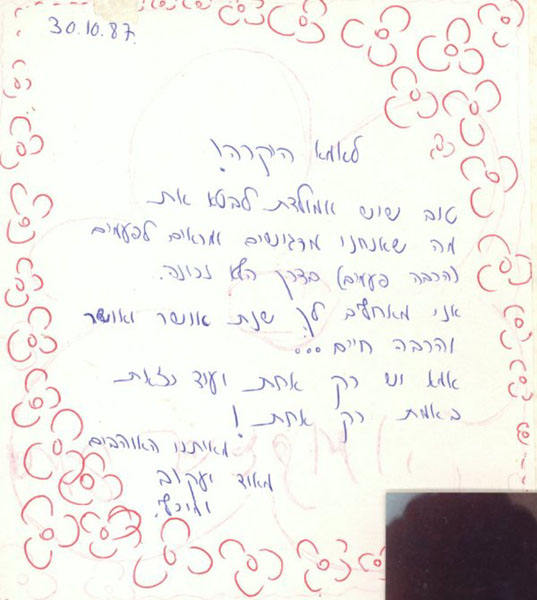 30.10.87.
לאמא היקרה!
טוב שיש יומולדת לבטא את
מה שאנחנו מרגישים ומראים לפעמים
(הרבה פעמים) בדרך הלא נכונה.
אני מאחלים לך שנת אושר ועושר
והרבה חיים...
אמא יש רק אחת ועוד כזאת
באמת רק אחת!
מאיתנו האוהבים
מאוד יעקוב